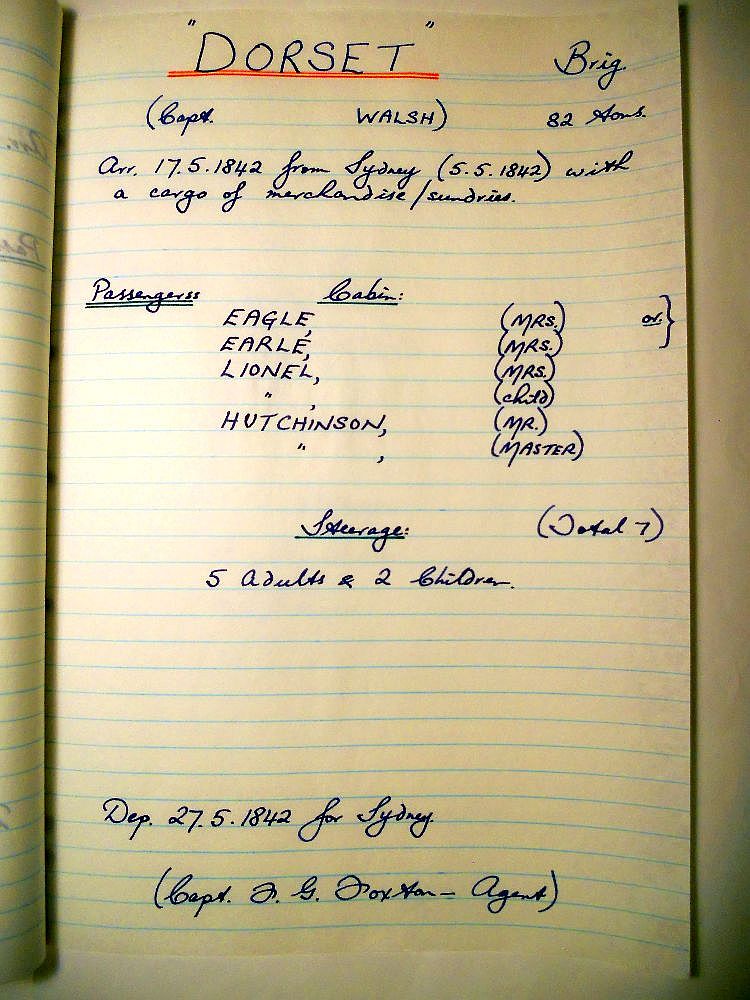 "DORSET" Brig.
(Capt. WALSH) 82 Tons.
Arr. 17.5.1842 from Sydney (5.5.1842) with
a cargo of merchandise/sundries.
Passengers: Cabin:
EAGLE, (MRS.) or }
EARLE, (MRS.)
LIONEL, (MRS.)
" , (child)
HUTCHINSON, (MR.)
" , (MASTER)
Steerage: (Total 7)
5 Adults & 2 Children.
Dep. 27.5.1842 for Sydney.
(Capt. F. G. Foxton - Agent)